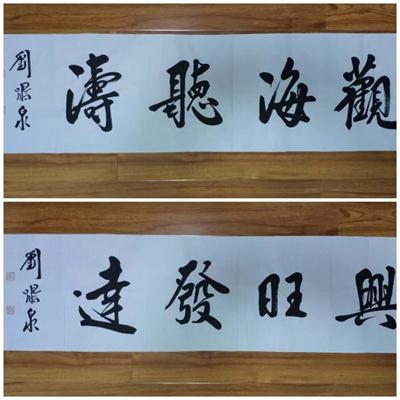 觀海聽濤
劉 泉
興旺發達
劉 泉